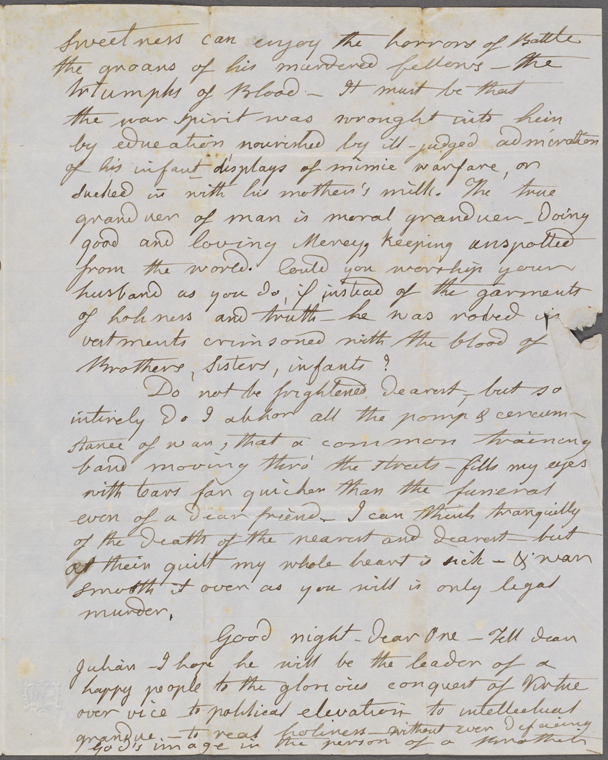 sweetness can enjoy the horrors of Battle
the groans of his murdered fellows - the
triumphs of Blood - It must be that
the war spirit was wrought into him
by education nourished by ill-judged admiration
of his infant displays of mimic warfare, or
sucked in with his mother's milk. The true
granduer of man is moral granduer - Doing
good and loving Mercy, Keeping unspotted
from the world. Could you worship your
husband as you do, if instead of the garments
of holiness and truth - he was robed in
vestments crimsoned with the blood of
Brothers, Sisters, infants?
Do not be frightened Dearest - but so
intirely do I abhor all the pomp & circum-
stance of war, that a common training
band moving thro' the streets - fills my eyes
with tears far quicker than the funeral
even of a dear friend - I can think tranquilly
of the Death of the nearest and dearest - but
at their guilt my whole heart is sick - & war
smooth it over as you will is only legal
murder.
Good night - Dear One - Tell dear
Julian - I hope he will be the leader of a
happy people to the glorious conquest of Virtue
over vice - to political elevation to intellectual
grandue - to real holiness - without even defacing
God's image in the person of a Brother